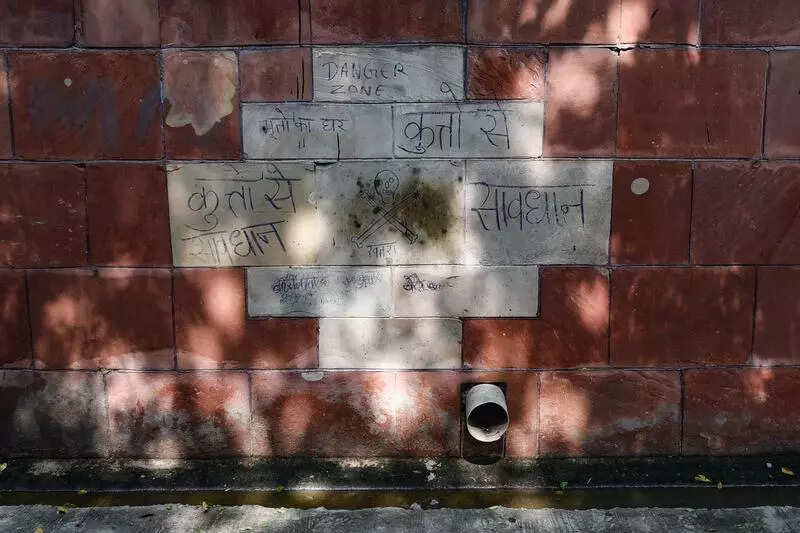 DANGER
ZONE
का घर
कुत्तो से
कुत्तो से
सावधान
खतरा
सावधान